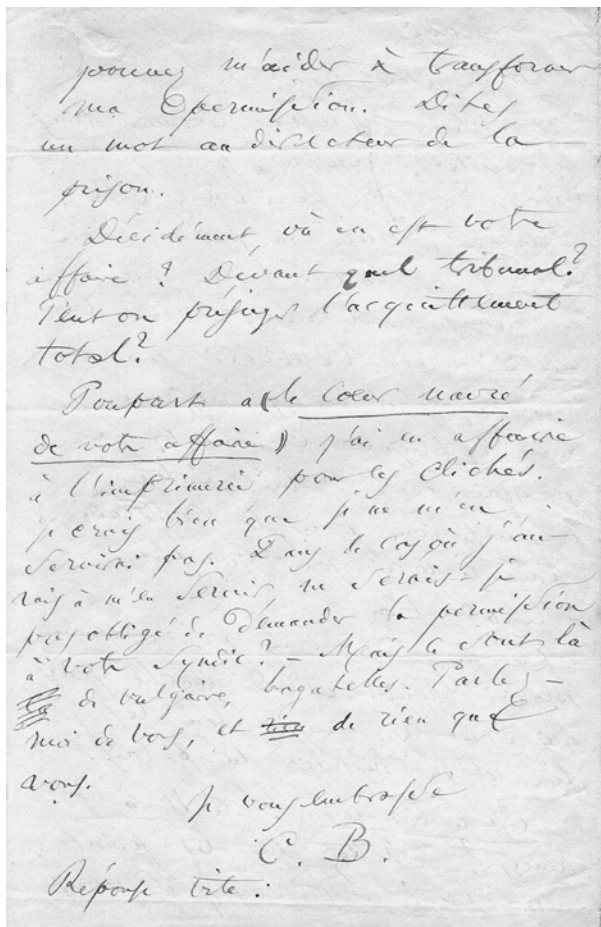 pouvez m'aider à transformer
ma permission. Dites
un mot au directeur de la
prison.
Décidément, où en est votre
affaire ? Devant quel tribunal ?
Peut on préjuger l'acquittement
total ?
Poupart a (le cœur navré
de votre affaire) j'ai eu affaire
à l'imprimerie pour les clichés.
je crois bien que je ne m'en
servirai pas. Dans le cas où j'au-
rais à m'en servir, ne serais-je
pas obligé de demander la permission
à votre Syndic ? – Mais ce sont là
de vulgaires bagatelles. Parlez-
moi de vous, et rien de rien que
vous.
Je vous embrasse
C. B.
Réponse vite :